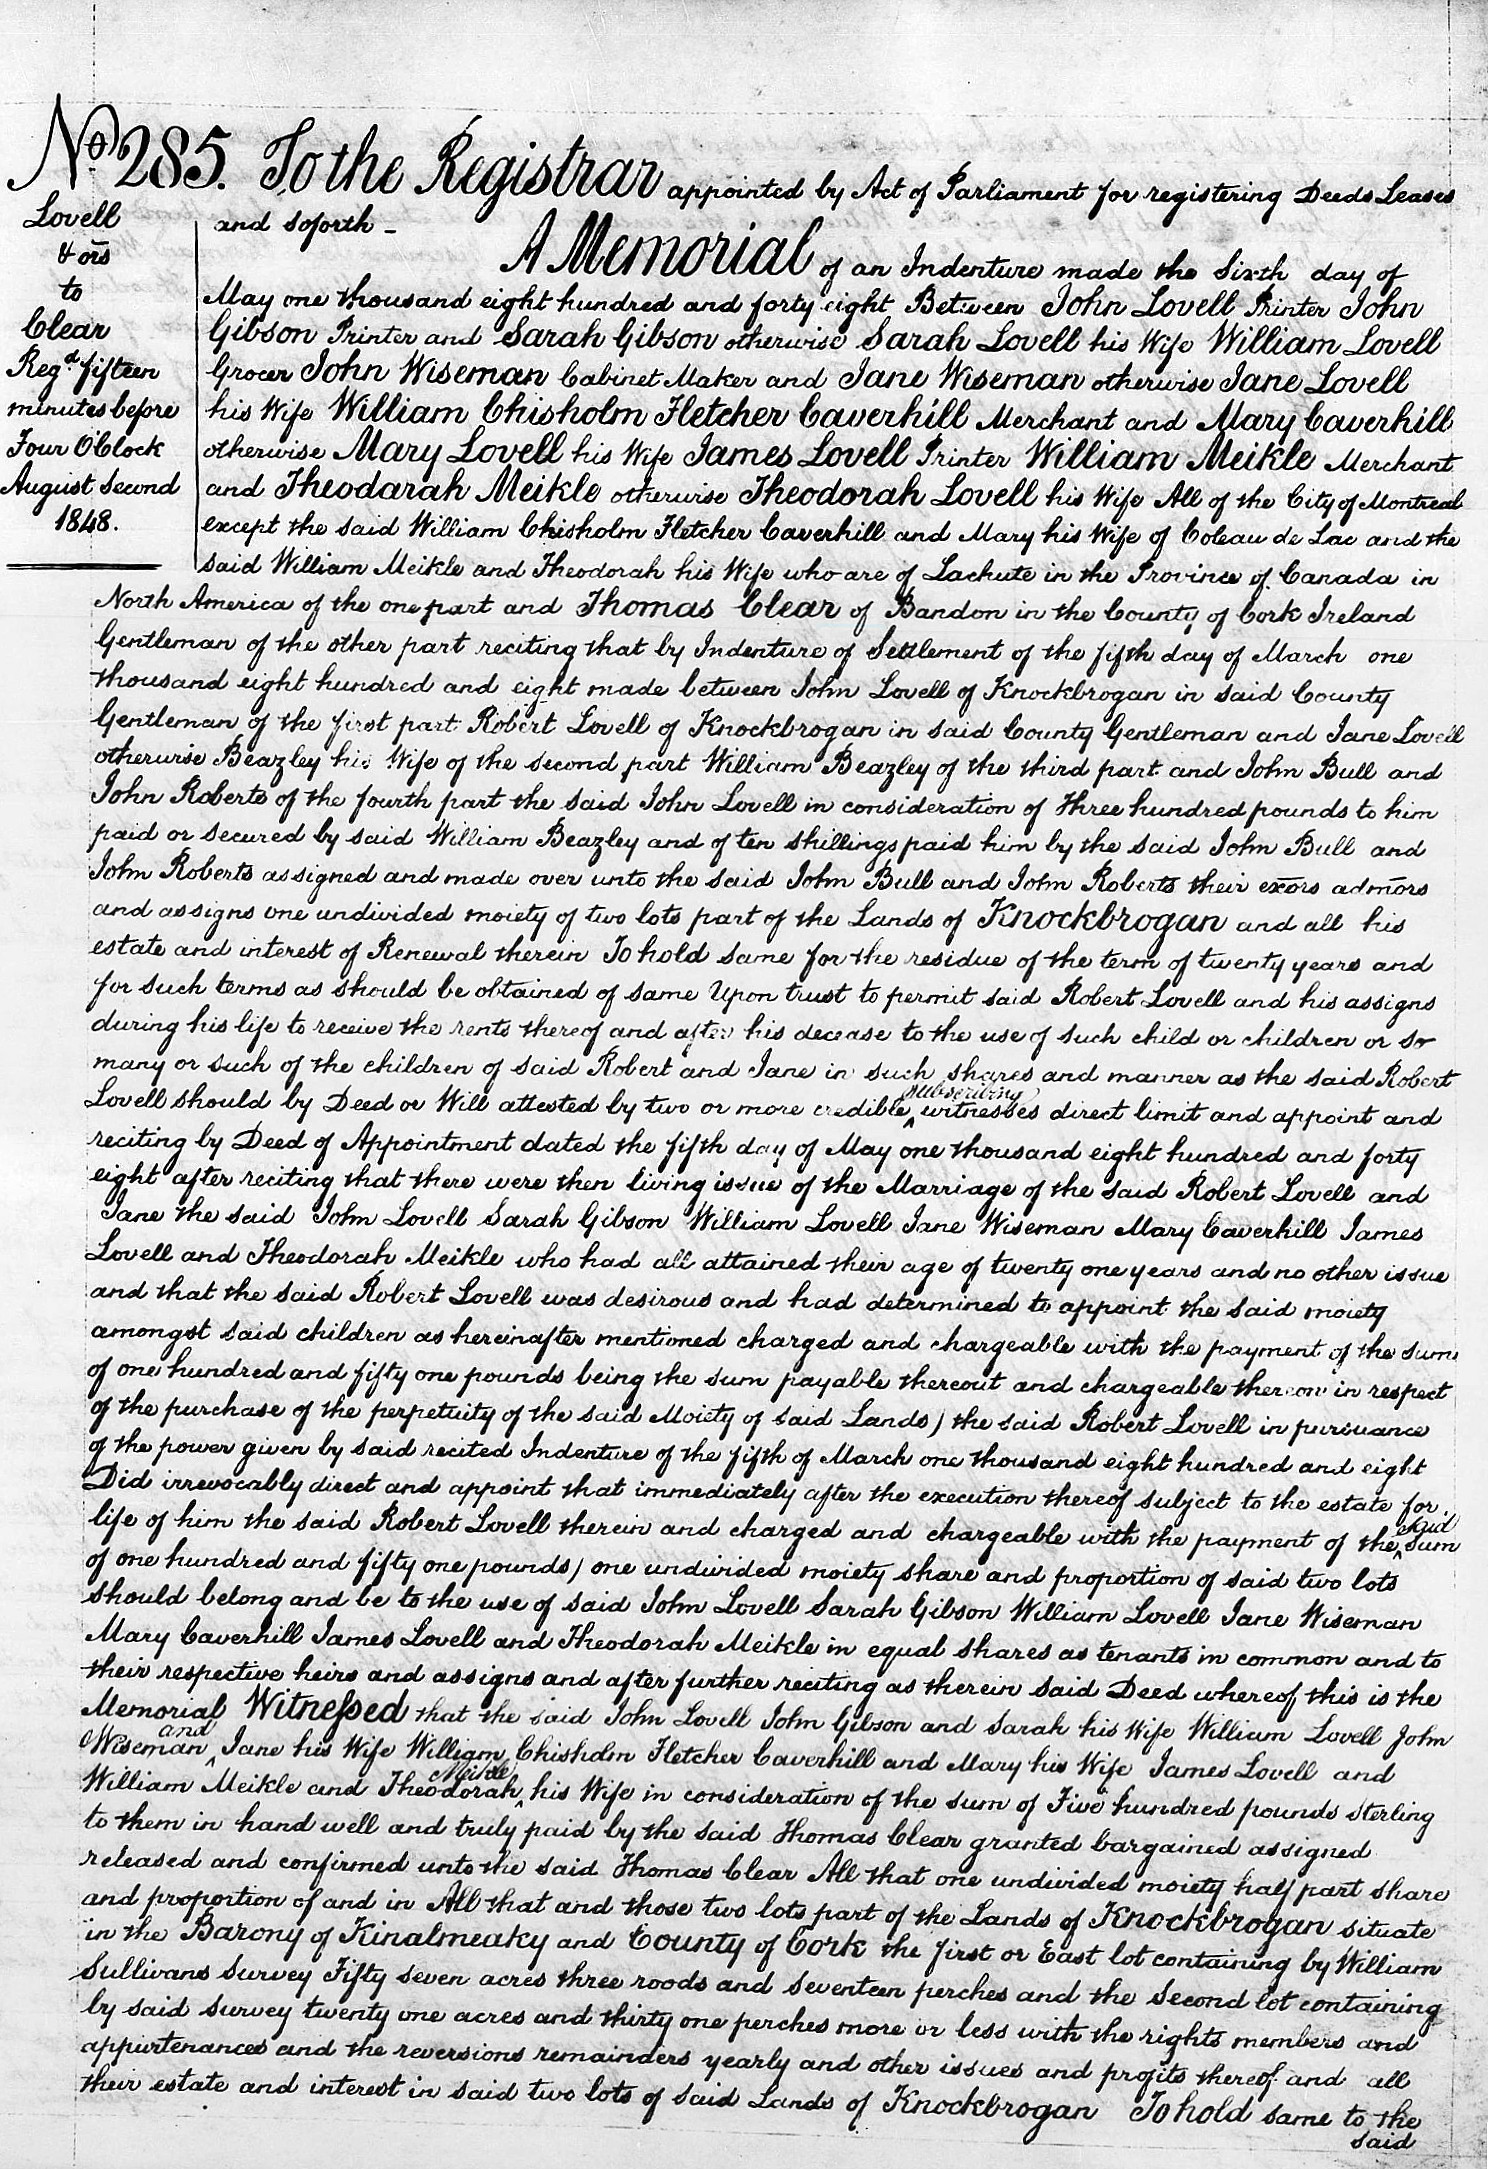 No. 285. To the Registrar appointed by Act of Parliament for registering Deeds Leases
and soforth -
Lovell
& ors
to
Clear
Regd. fifteen
minutes before
Four O'Clock
August Second
1848.
A Memorial of an Indenture made the Sixth day of
May one thousand eight hundred and forty eight Between John Lovell Printer John
Gibson Printer and Sarah Gibson otherwise Sarah Lovell his Wife William Lovell
Grocer John Wiseman Cabinet Maker and Jane Wiseman otherwise Jane Lovell
his Wife William Chisholm Fletcher Caverhill Merchant and Mary Caverhill
otherwise Mary Lovell his Wife James Lovell Printer William Meikle Merchant
and Theodarah Meikle otherwise Theodorah Lovell his Wife All of the City of Montreal
except the said William Chisholm Fletcher Caverhill and Mary his Wife of Coteau de Lac and the
said William Meikle and Theodorah his Wife who are of Lachute in the Province of Canada in
North America of the one part and Thomas Clear of Bandon in the County of Cork Ireland
Gentleman of the other part reciting that by Indenture of Settlement of the fifth day of March one
thousand eight hundred and eight made between John Lovell of Knockbrogan in said County
Gentleman of the first part Robert Lovell of Knockbrogan in said County Gentleman and Jane Lovell
otherwise Beazley his Wife of the second part William Beazley of the third part and John Bull and
John Roberts of the fourth part the said John Lovell in consideration of Three hundred pounds to him
paid or secured by said William Beazley and of ten shillings paid him by the said John Bull and
John Roberts assigned and made over unto the said John Bull and John Roberts their exors admors
and assigns one undivided moiety of two lots part of the Lands of Knockbrogan and all his
estate and interest of Renewal therein To hold same for the residue of the term of twenty years and
for such terms as should be obtained of same Upon trust to permit said Robert Lovell and his assigns
during his life to receive the rents thereof and after his decease to the use of such child or children or so
many or such of the children of said Robert and Jane in such shares and manner as the said Robert
Lovell should by Deed or Will attested by two or more credible subscribing witnesses direct limit and appoint and
reciting by Deed of Appointment dated the fifth day of May one thousand eight hundred and forty
eight after reciting that there were then living issue of the Marriage of the said Robert Lovell and
Jane the said John Lovell Sarah Gibson William Lovell Jane Wiseman Mary Caverhill James
Lovell and Theodorah Meikle who had all attained their age of twenty one years and no other issue
and that the said Robert Lovell was desirous and had determined to appoint the said moiety
amongst said children as hereinafter mentioned charged and chargeable with the payment of the sum
of one hundred and fifty one pounds being the sum payable thereout and chargeable thereon in respect
of the purchase of the perpetuity of the said Moiety of said Lands) the said Robert Lovell in pursuance
of the power given by said recited Indenture of the fifth of March one thousand eight hundred and eight
Did irrevocably direct and appoint that immediately after the execution thereof subject to the estate for
life of him the said Robert Lovell therein and charged and chargeable with the payment of the said sum
of one hundred and fifty one pounds) one undivided moiety share and proportion of said two lots
should belong and be to the use of said John Lovell Sarah Gibson William Lovell Jane Wiseman
Mary Caverhill James Lovell and Theodorah Meikle in equal shares as tenants in common and to
their respective heirs and assigns and after further reciting as therein said Deed whereof this is the
Memorial Witnessed that the said John Lovell John Gibson and Sarah his Wife William Lovell John
Wiseman and Jane his Wife William Chisholm Fletcher Caverhill and Mary his Wife James Lovell and
William Meikle and Theodorah Meikle his Wife in consideration of the sum of Five hundred pounds sterling
to them in hand well and truly paid by the said Thomas Clear granted bargained assigned
released and confirmed unto the said Thomas Clear All that one undivided moiety half part share
and proportion of and in All that and those two lots part of the Lands of Knockbrogan situate
in the Barony of Kinalmeaky and County of Cork the first or East lot containing by William
Sullivans Survey Fifty seven acres three roods and seventeen perches and the Second lot containing
by said survey twenty one acres and thirty one perches more or less with the rights members and
appurtenances and the reversions remainders yearly and other issues and profits thereof and all
their estate and interest in said two lots of said Lands of Knockbrogan To hold same to the
said